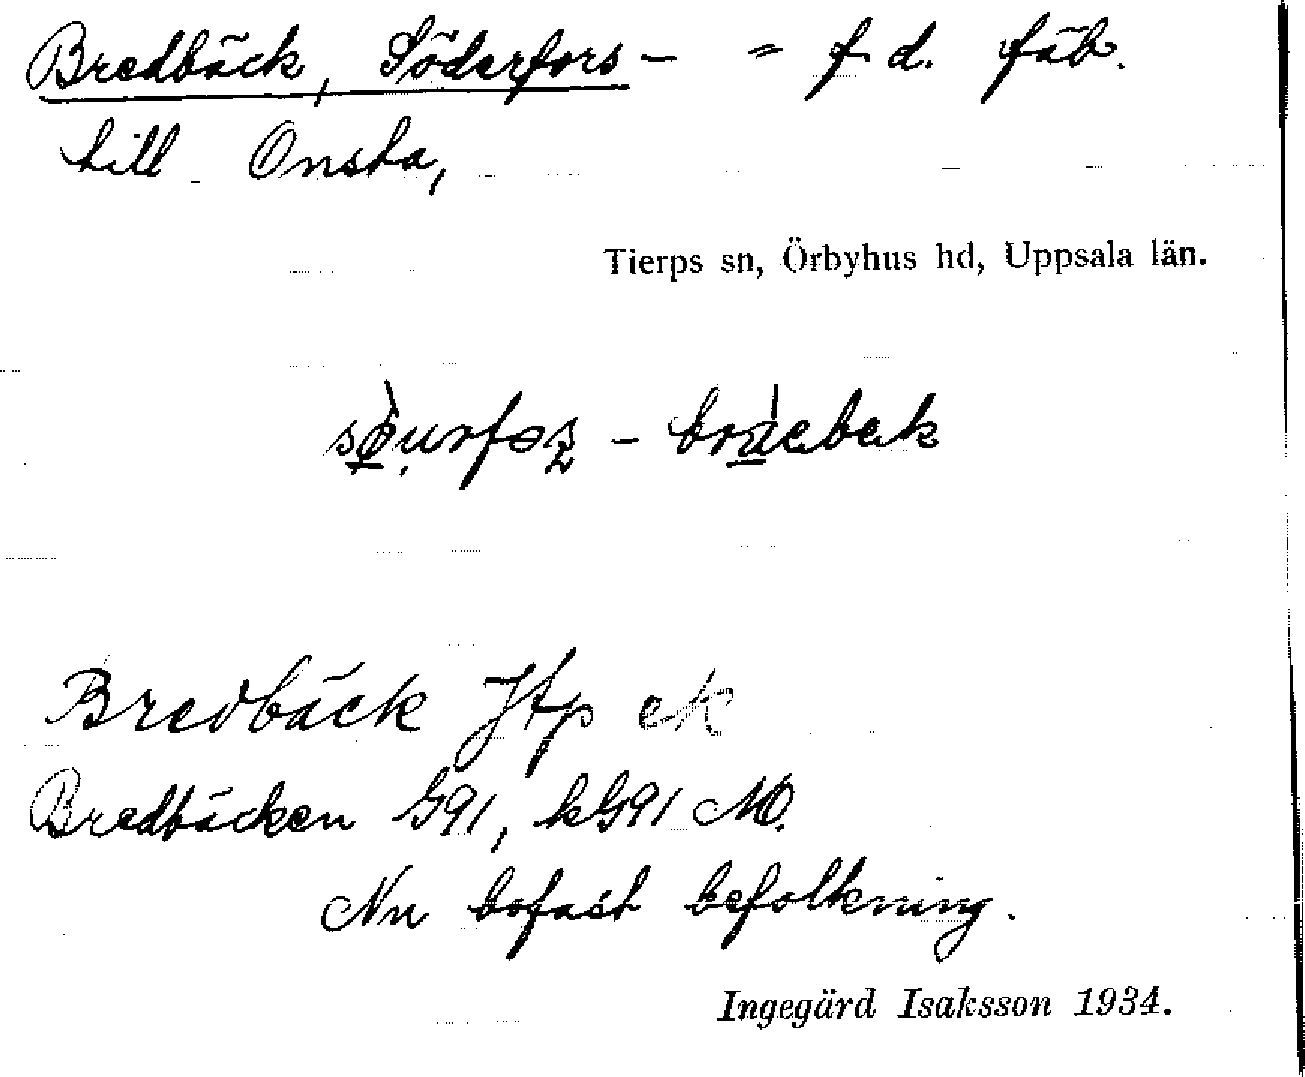 Bredbäck, Söderfors – = f. d. fäb.
till Onsta,
Tierps sn, Örbyhus hd, Uppsala län.
Bredbäck Jtp ek
Bredbäcken G91, kG91 M.
Nu bofast befolkning.
Ingegärd Isaksson 1934.